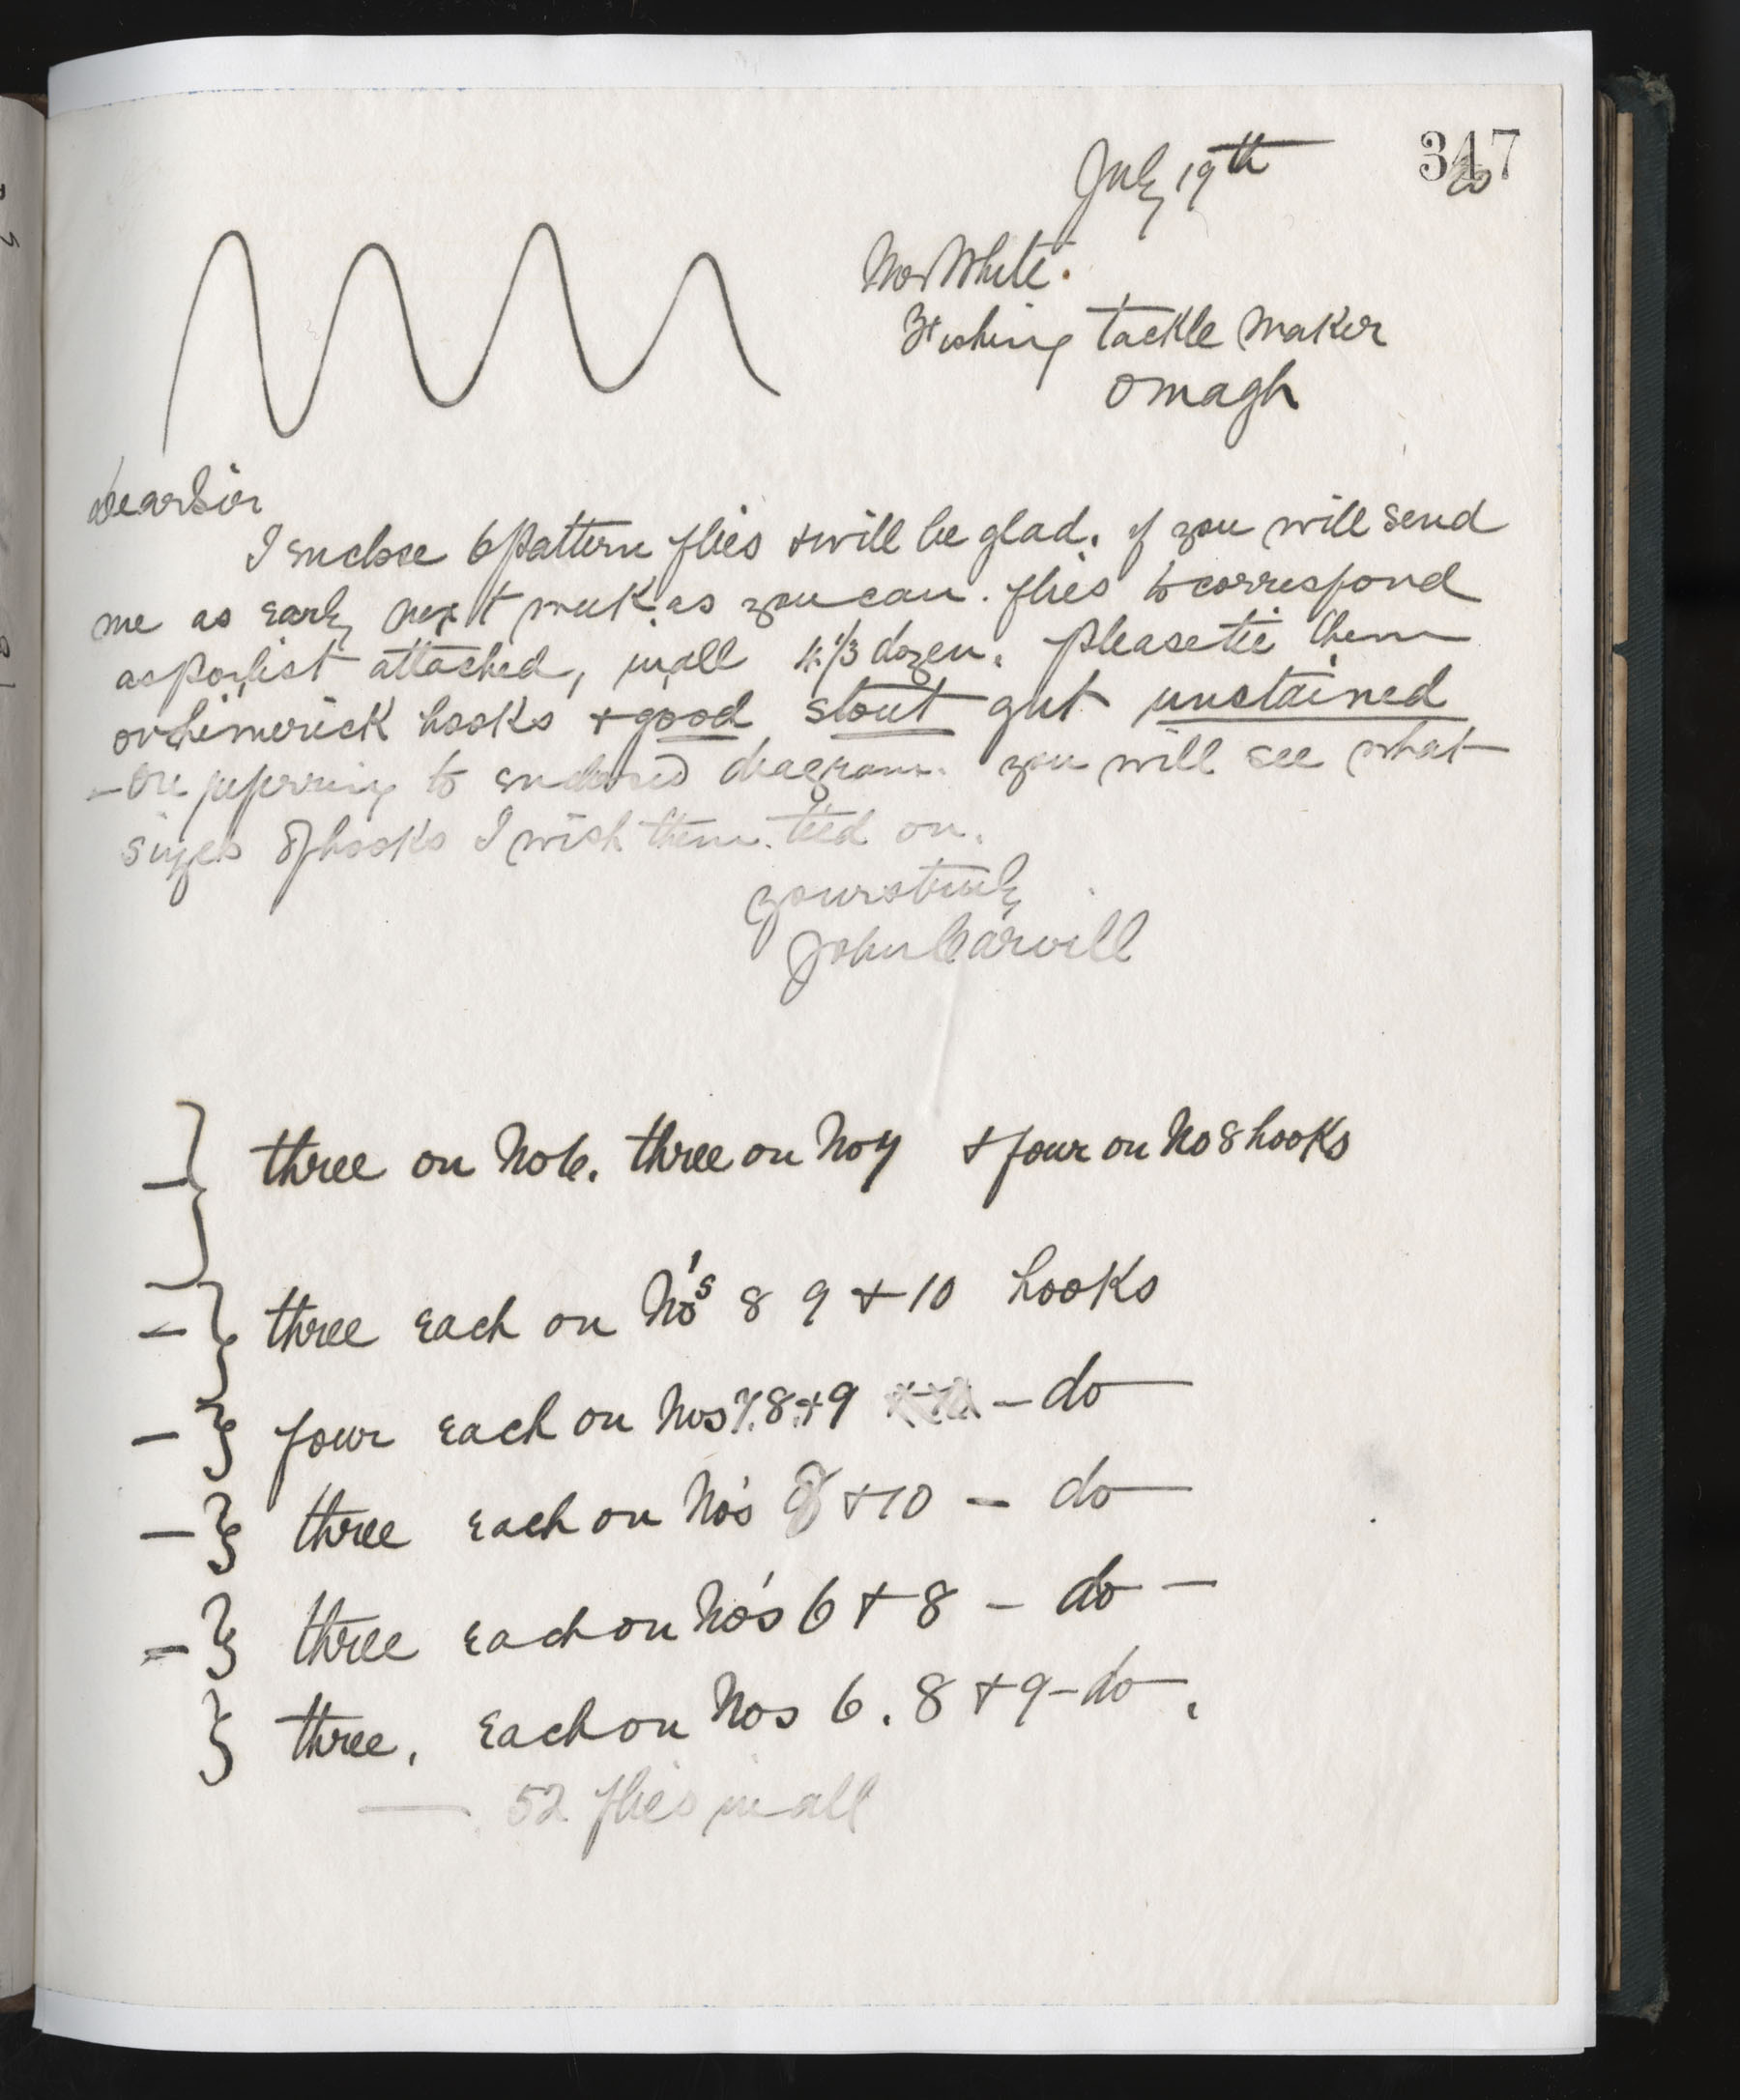 347
July 19th
Mr White.
Fishing tackle Maker
Omagh
Dear Sir
I enclose 6 pattern flies + will be glad. if you will send
me as early next week as you can. flies to correspond
as per list attached, in all 4 1/3 dozen. Please tie them
on Limerick hooks + good stout gut unstained
- On referring to enclosed diagram. you will see what
sizes of hooks I wish them. tied on.
yours truly
John Carvill
three on No 6. three on No 7 + four on No 8 hooks
three each on No's 8 9 + 10 hooks
four each on Nos 7. 8. + 9 - do
three each on No's 8 + 10 - do
three each on No's 6 + 8 - do -
three. each on Nos 6. 8 + 9 - do.
52 flies in all